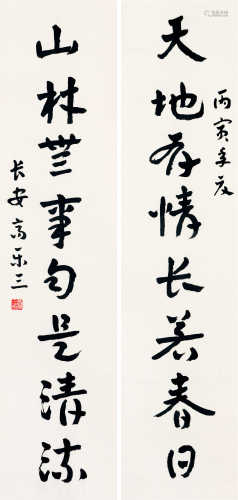 丙寅季夏
天地存情长若春日
山林無事是清流
长安高乐三